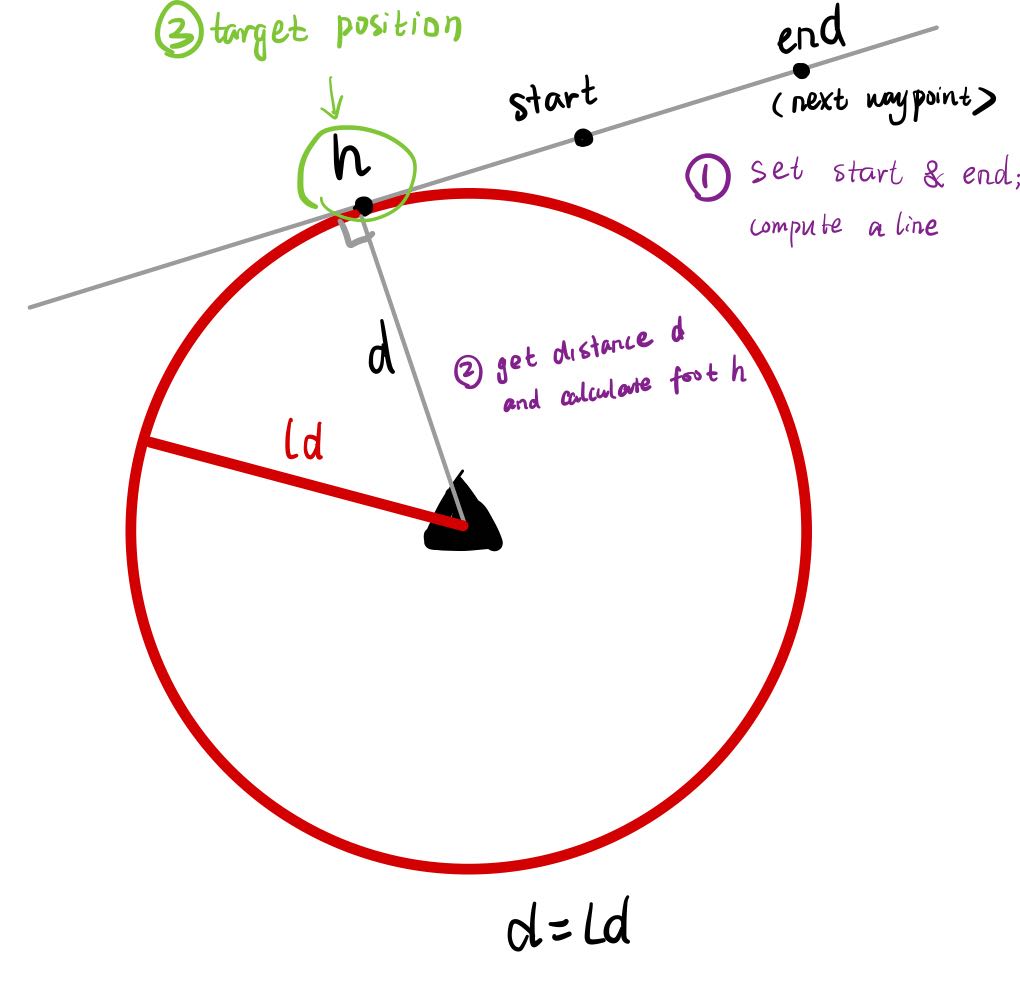 ③ target position
end
(next waypoint>
start
h
① set start & end;
compute a line
d
② get distance d
and calculate foot h
ld
d = Ld